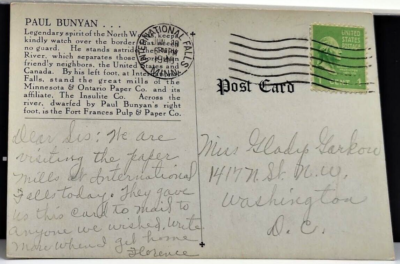 PAUL BUNYAN . . .
Legendary spirit of the North Woods, keeps
kindly watch over the border that
no guard. He stands astride
River, which separates those
friendly neighbors, the United States and
Canada. By his left foot, at International
Falls, stand the great mills of the
Minnesota & Ontario Paper Co. and its
affiliate. The Insulite Co. Across the
river, dwarfed by Paul Bunyan's right
foot, is the Fort Frances Pulp & Paper Co.
INTERNATIONAL FALLS
MINN.
Post Card
Dear Sis: We are
visiting the paper
mills at International
Falls today. They gave
us this card to mail to
anyone we wished. Write
more when I get home
Florence
Miss Gladys
1417 N St. N.W.
Washington
D.C.